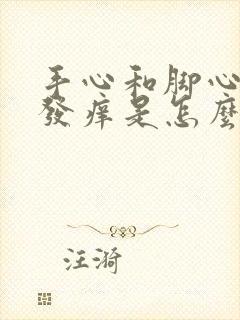 手心和脚心
發痒是怎麼
汪漪